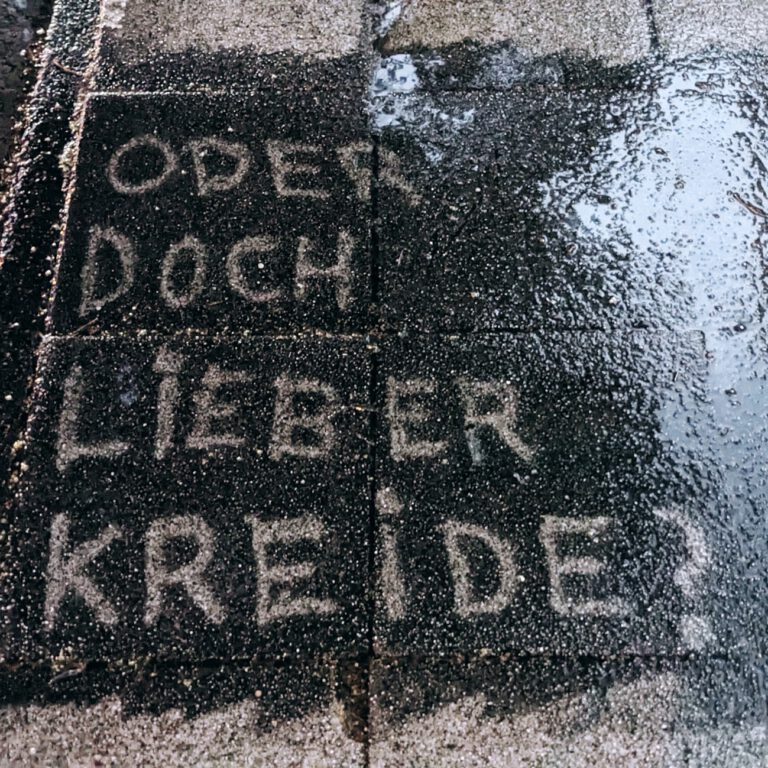 ODER
DOCH
LiEBER
KREiDE?